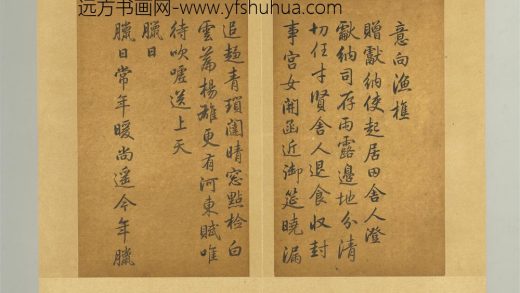 远方书画网-www.yfshuhua.com
意向漁樵
贈獻納使起居田舍人澄
獻納司存雨露邊地分清
切任才賢舍人退食收封
事宮女開函近御筵曉漏
追趨青瑣闥晴窓點撿白
雲篇楊雄更有河東賦唯
待吹噓送上天
臘日
臘日常年暖尚遙今年臘